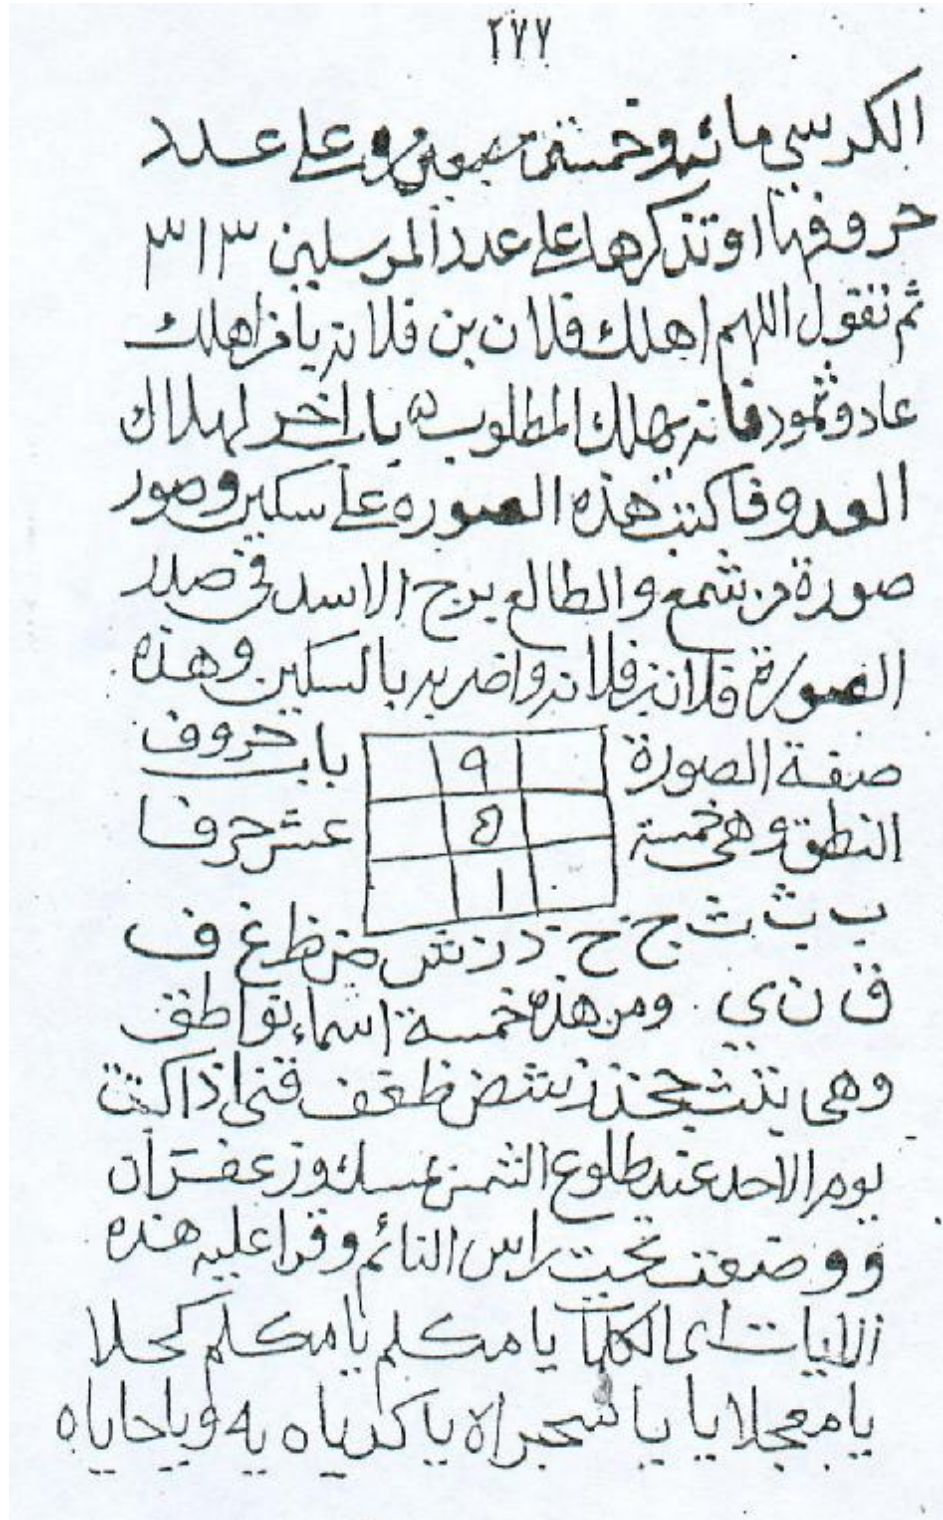 ٢٧٧
الكرسى مائه وخمسين سبعين مره وعلى عدد
حروفها او تذكرها على عدد المرسلين ٣١٣
ثم تقول اللهم اهلك فلان بن فلانه يا من اهلك
عاد وثمود فانه يهلك المطلوب باب اخر لهلاك
العدو فاكتب هذه الصوره على سكين وصور
صورة من شمع والطالع برج الاسد في صدر
الصورة فلان بن فلانه واضربه بالسكين وهذه
صفة الصورة
٩
٥
١
باب حروف
النطق وهى خمسة عشر حرفا
ب ت ث ج خ ذ ز ش ض ظ غ ف
ق ن ي ومن هذه خمسة اسماء نواطق
وهى بتث جخذ زشض ظغف قنى اذا كتبت
يوم الاحد عند طلوع الشمس بمسك وزعفران
ووضعت تحت راس النائم وقرا عليه هذه
الايات اى الكلمات يا مكلم يا مكلم كحلا